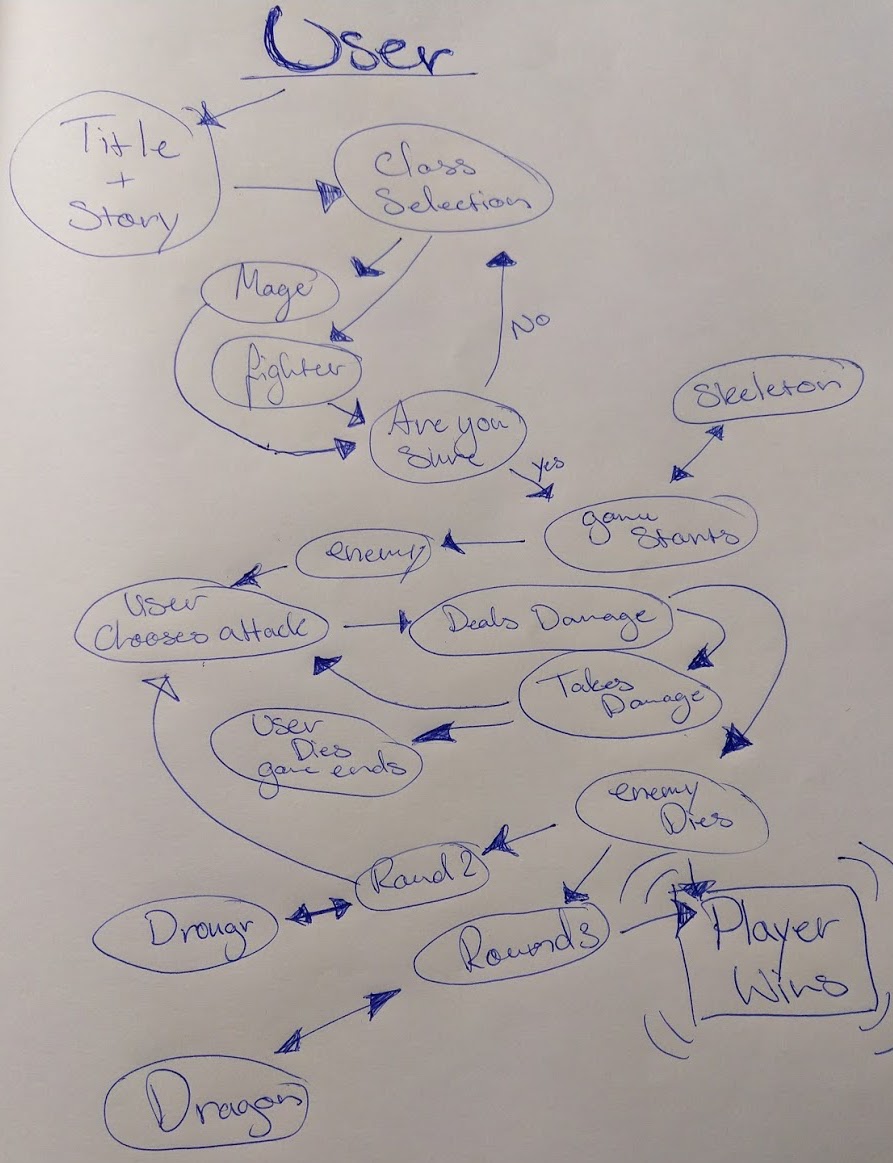 User
Title
+
Story
Class
Selection
Mage
fighter
No
Are you
Sure
yes
Skeleton
game
Starts
enemy
User
Chooses attack
Deals Damage
Takes
Damage
User
Dies
game ends
enemy
Dies
Round 2
Drougr
Round 3
Player
Wins
Dragon